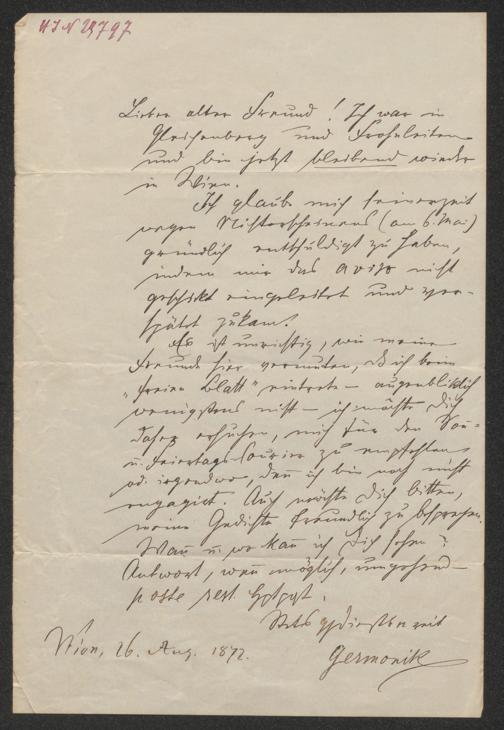 HIN 29797
Lieber alter Freund! Ich war in
Gleichenberg und Frohnleiten
und bin jetzt bleibend wieder
in Wien.
Ich glaube mich seinerzeit
wegen Nichterscheinens (am 6. Mai)
gründlich entschuldigt zu haben,
indem mir das Aviso nicht
geschickt eingeleitet und ver-
spätet zukam.
Es ist unrichtig, wie meine
Freunde hier vermuten, daß ich beim
„freien Blatt" eintrete – augenblicklich
wenigstens nicht – ich möchte Dich
daher ersuchen, mich für den Son-
u. Feiertags-Courier zu empfehlen
od. irgendwo, denn ich bin noch nicht
engagirt. Auch möchte Dich bitten,
meine Gedichte freundlich zu besprechen.
Wan̄ u. wo kan̄ ich Dich sehen?
Antwort, wen̄ möglich, umgehend
poste rest. Hptpst.
Stets gedienstbereit
Wien, 26. Aug. 1892.
Germonik